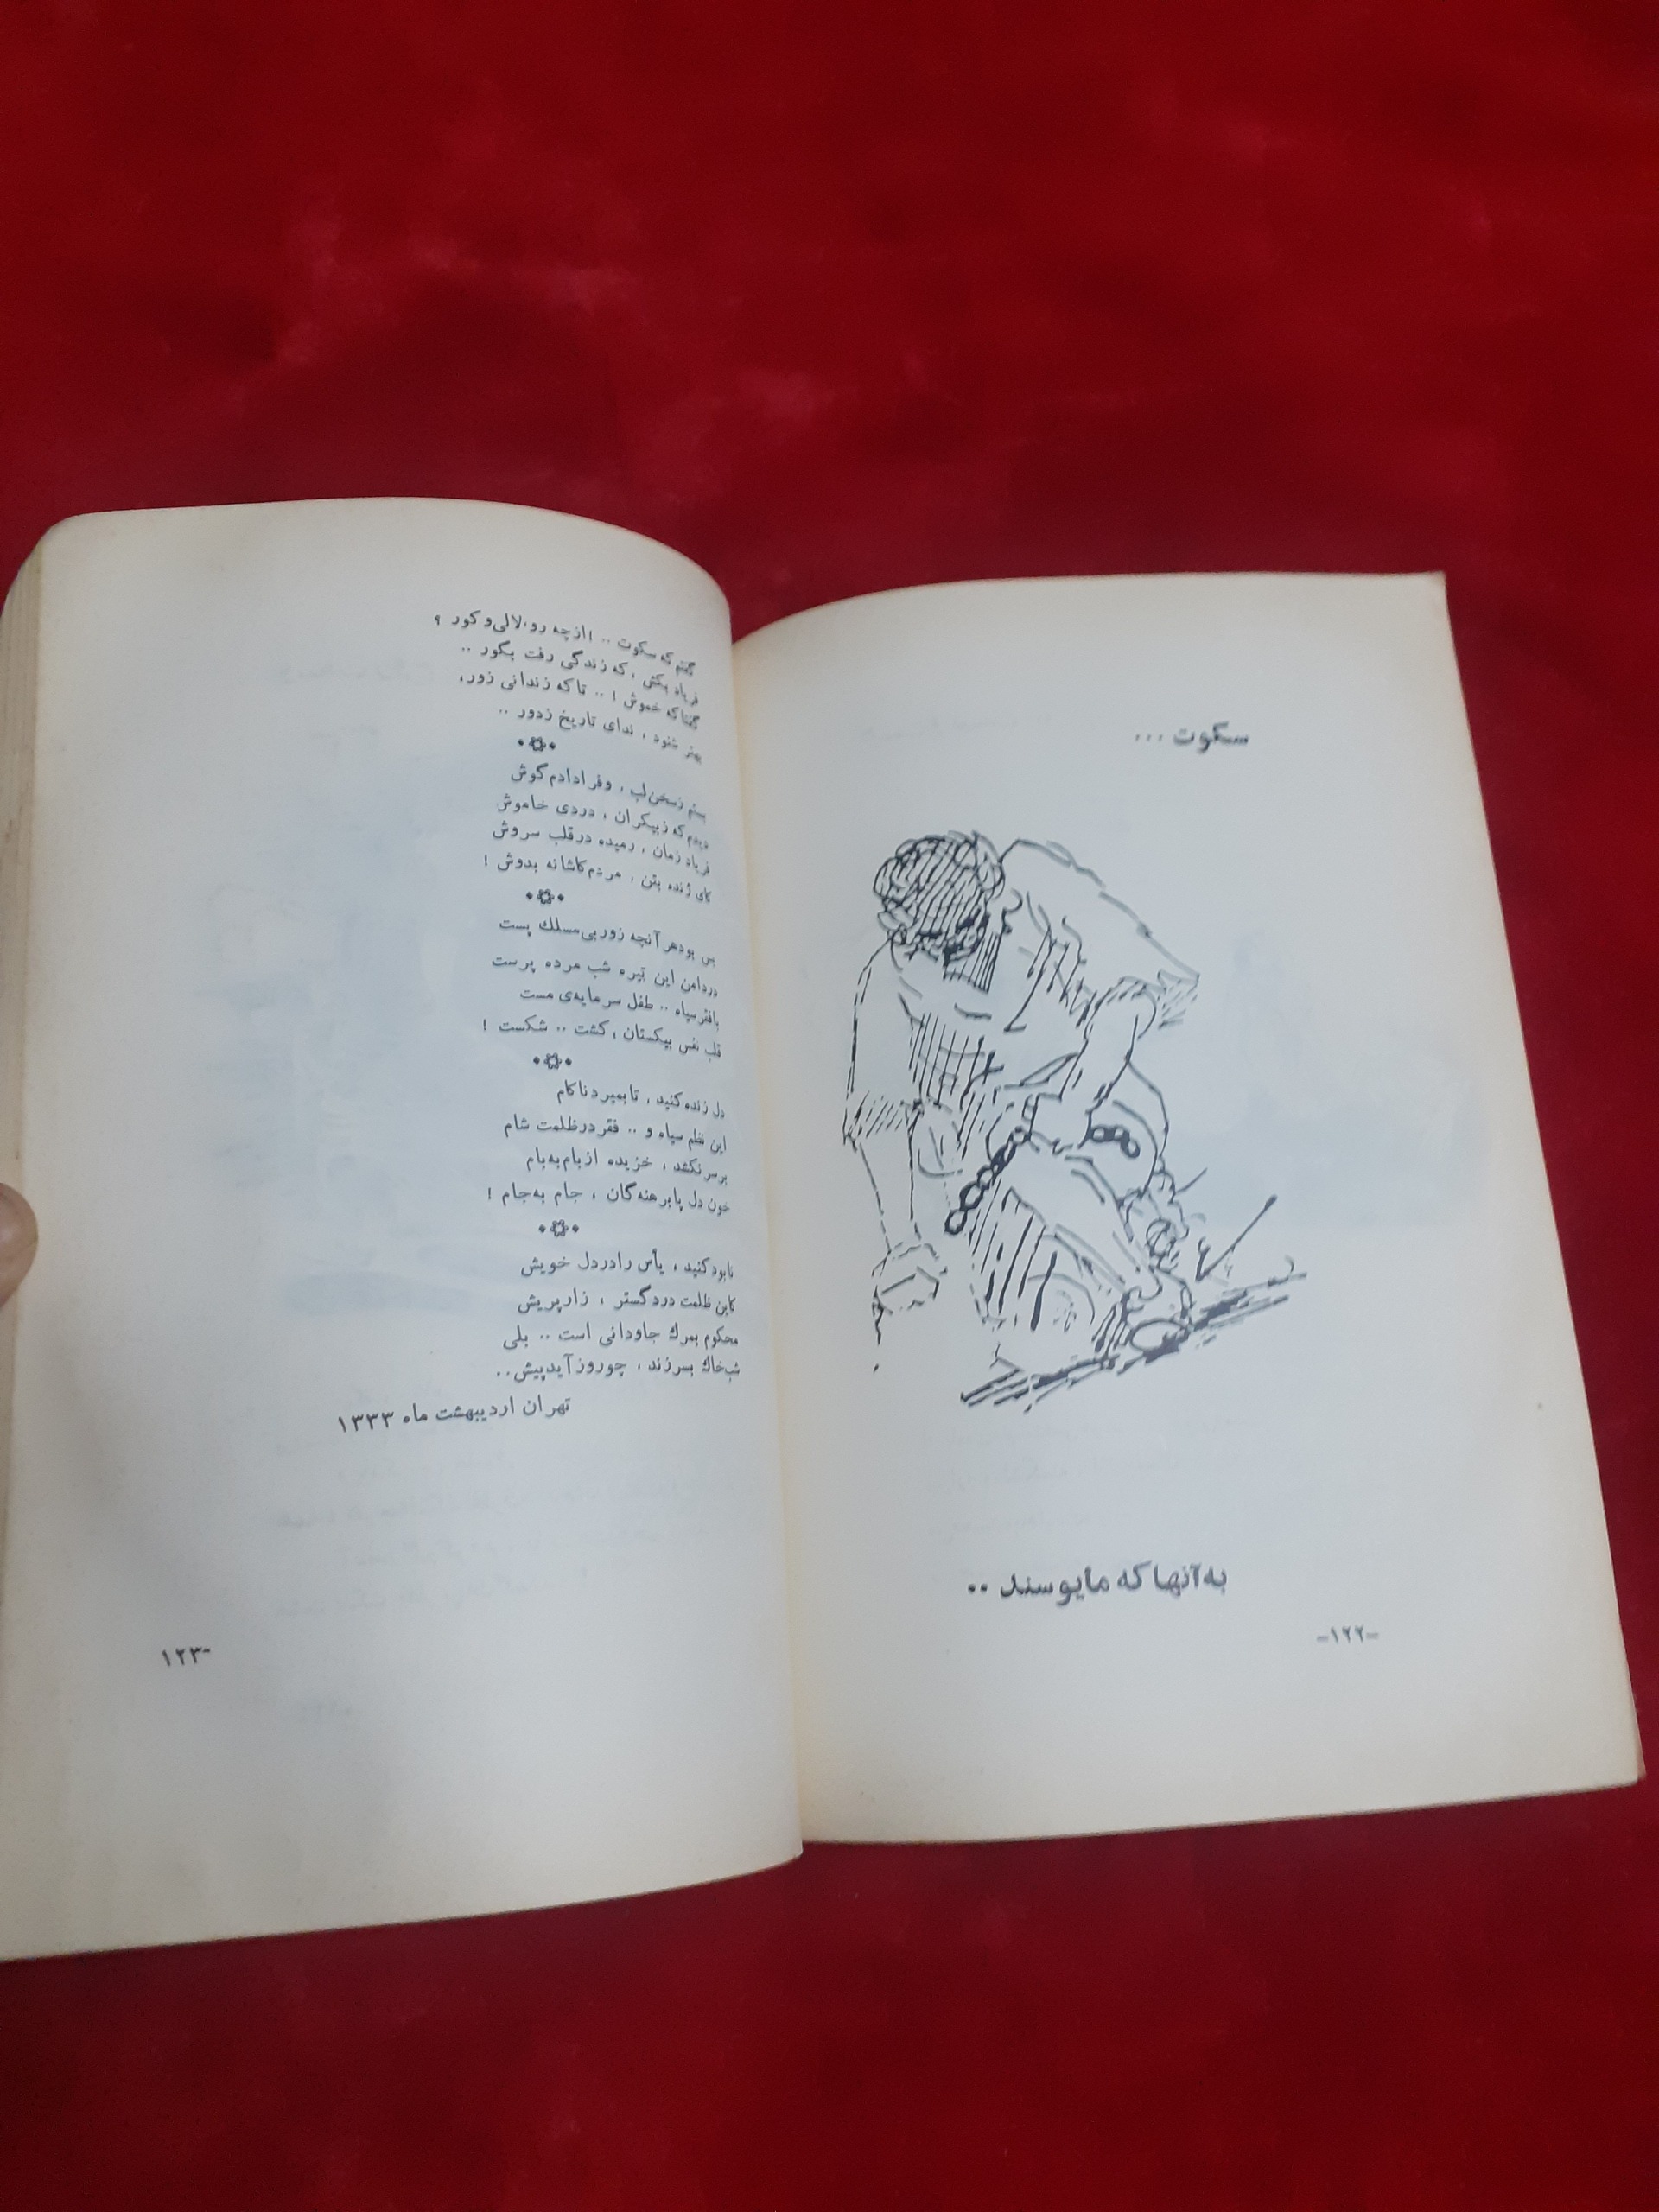 سکوت ...
به آنها که مایوسند ..
-۱۲۲-
گفتم که سکوت .. ! از چه رو، لالی و کور ؟
فریاد بکش ، که زندگی رفت بگور ..
گفتا که خموش ! .. تا که زندانی زور،
بهتر شنود ، ندای تاریخ زدور ..
بستم زسخن لب ، وفرا دادم گوش
دیدم که زبیکران ، دردی خاموش
فریاد زمان ، رمیده در قلب سروش
کای ژنده بتن ، مردم کاشانه بدوش !
بس بود هر آنچه زور بی مسلك پست
در دامن این تیره شب مرده پرست
با فقر سیاه .. طفل سرمایه‌ی مست
قلب نفس بیکستان ، کشت .. شکست !
دل زنده کنید ، تا بمیرد ناکام
این نظم سیاه و .. فقر در ظلمت شام
بر سر نکشد ، خزیده از بام به بام
خون دل پا برهنه گان ، جام به جام !
نابود کنید ، یأس را در دل خویش
کاین ظلمت درد گستر ، زار پریش
محکوم بمرگ جاودانی است .. بلی
شب خاك بسر زند ، چو روز آید پیش ..
تهران اردیبهشت ماه ۱۳۳۳
-۱۲۳